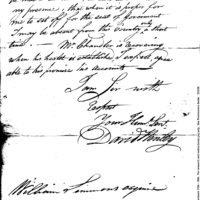 my presence, that when it is proper for
me to set off for the seat of government
I may be absent from this country a short
time. Mr Chandler is recovering
when his health is established, I expect, agree
able to his promise his accounts
I am Sir with
respect
Your Huml Servt.
David Henley
William Simmons esquire